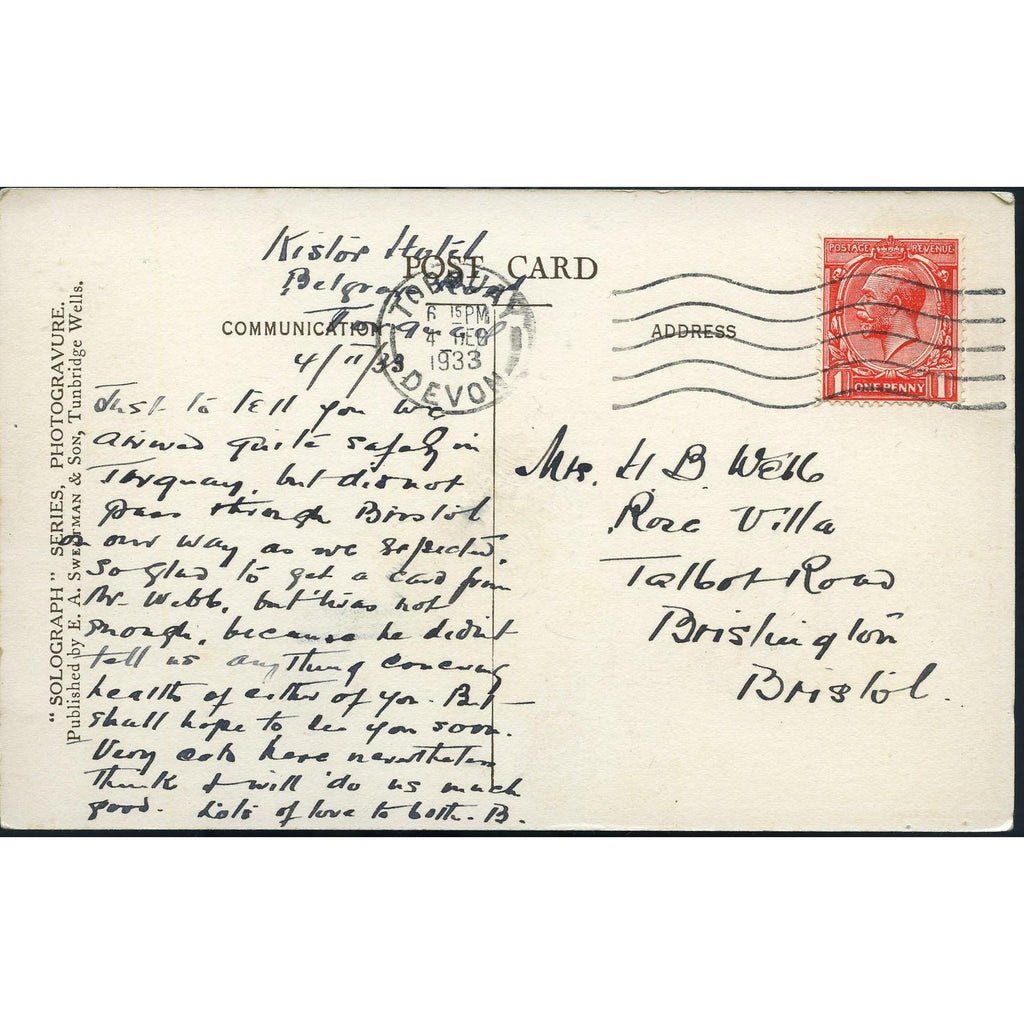 Kistor Hotel
Belgrave Road
Torquay
POST CARD
COMMUNICATION
ADDRESS
4/11/33
TORQUAY
6 15PM
4 DEC
1933
DEVON
POSTAGE REVENUE
1 ONE PENNY 1
Just to tell you we
arrived quite safely in
Torquay, but did not
pass through Bristol
on our way as we expected
So glad to get a card from
Mr. Webb, but 'twas not
enough, because he didn't
tell us anything concerning
health of either of you. But
shall hope to see you soon.
Very cold here nevertheless
think it will do us much
good. Lots of love to both. B.
Mrs. H B Webb
Rose Villa
Talbot Road
Brislington
Bristol.
"SOLOGRAPH" SERIES, PHOTOGRAVURE.
Published by E. A. SWEETMAN & SON, Tunbridge Wells.